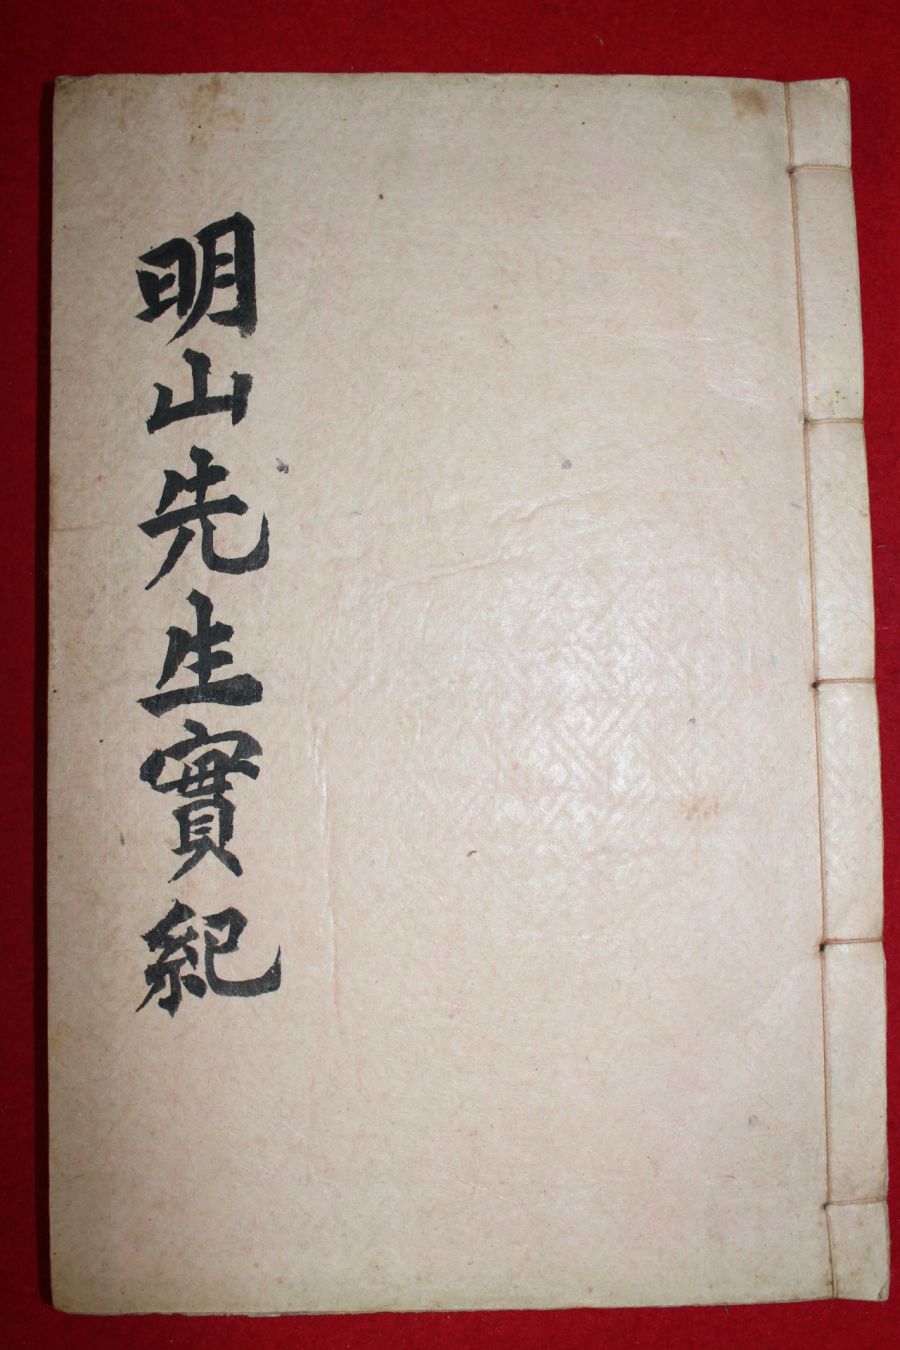 明山先生實紀